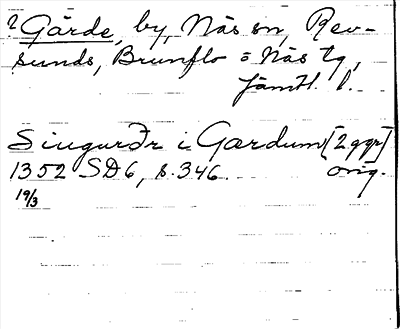 ? Gärde, by, Näs sn, Rev-
sunds, Brunflo o Näs tg,
Jämtl. l.
Siugurðr i Gardum [2 ggr]
1352 SD6, s. 346. orig.
19/3